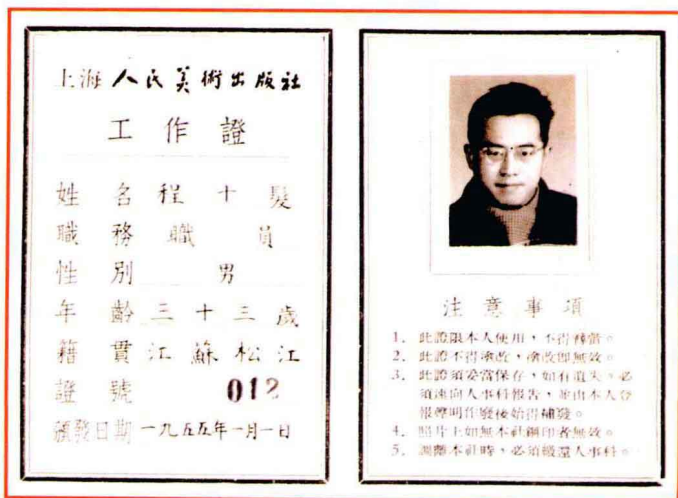 上海人民美術出版社
工作證
姓名程十髮
職務職員
性別男
年齡三十三歲
籍貫江蘇松江
證號012
頒發日期一九五五年一月一日
注意事項
1. 此證限本人使用，不得轉借。
2. 此證不得塗改，塗改即無效。
3. 此證須妥當保存，如有遺失，必
須速向人事科報告，並由本人登
報聲明作廢後始得補發。
4. 照片上如無本社鋼印者無效。
5. 調離本社時，必須繳還人事科。